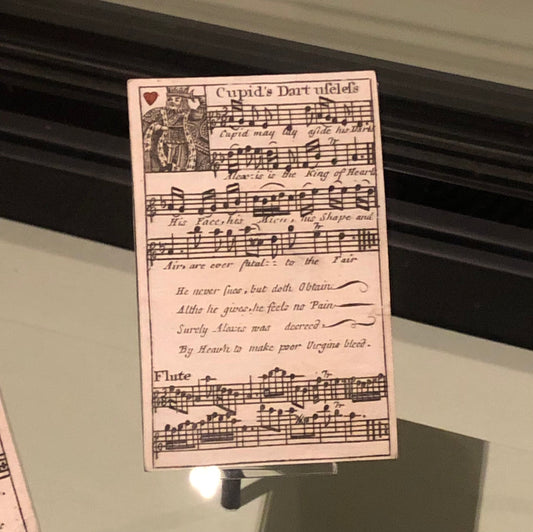 Cupid's Dart uſeleſs
Cupid may lay aſide his Darts
Alexis is the King of Hearts
His Face, his Mien, his Shape and
Air, are ever fatal to the Fair
He never ſues, but doth Obtain
Altho he gives, he feels no Pain
Surely Alexis was decreed,
By Heav'n to make poor Virgins bleed.
Flute